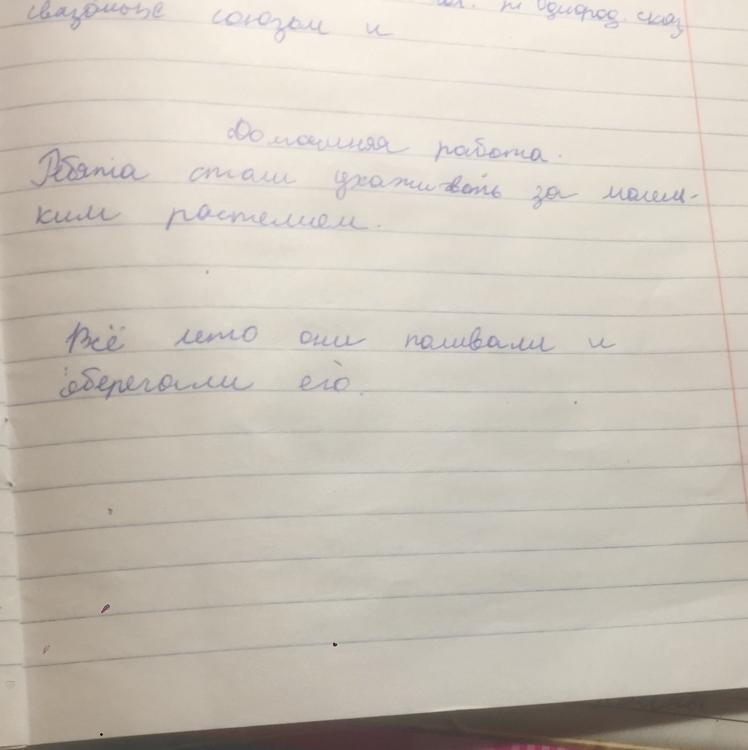 однород. сказ
связаные союзом и
Домашняя работа.
Ребята стали ухаживать за малень-
ким растением.
Всё лето они поливали и
оберегали его.